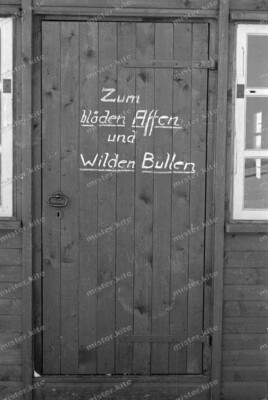 Zum
blöden Affen
und
Wilden Bullen
mister.kite